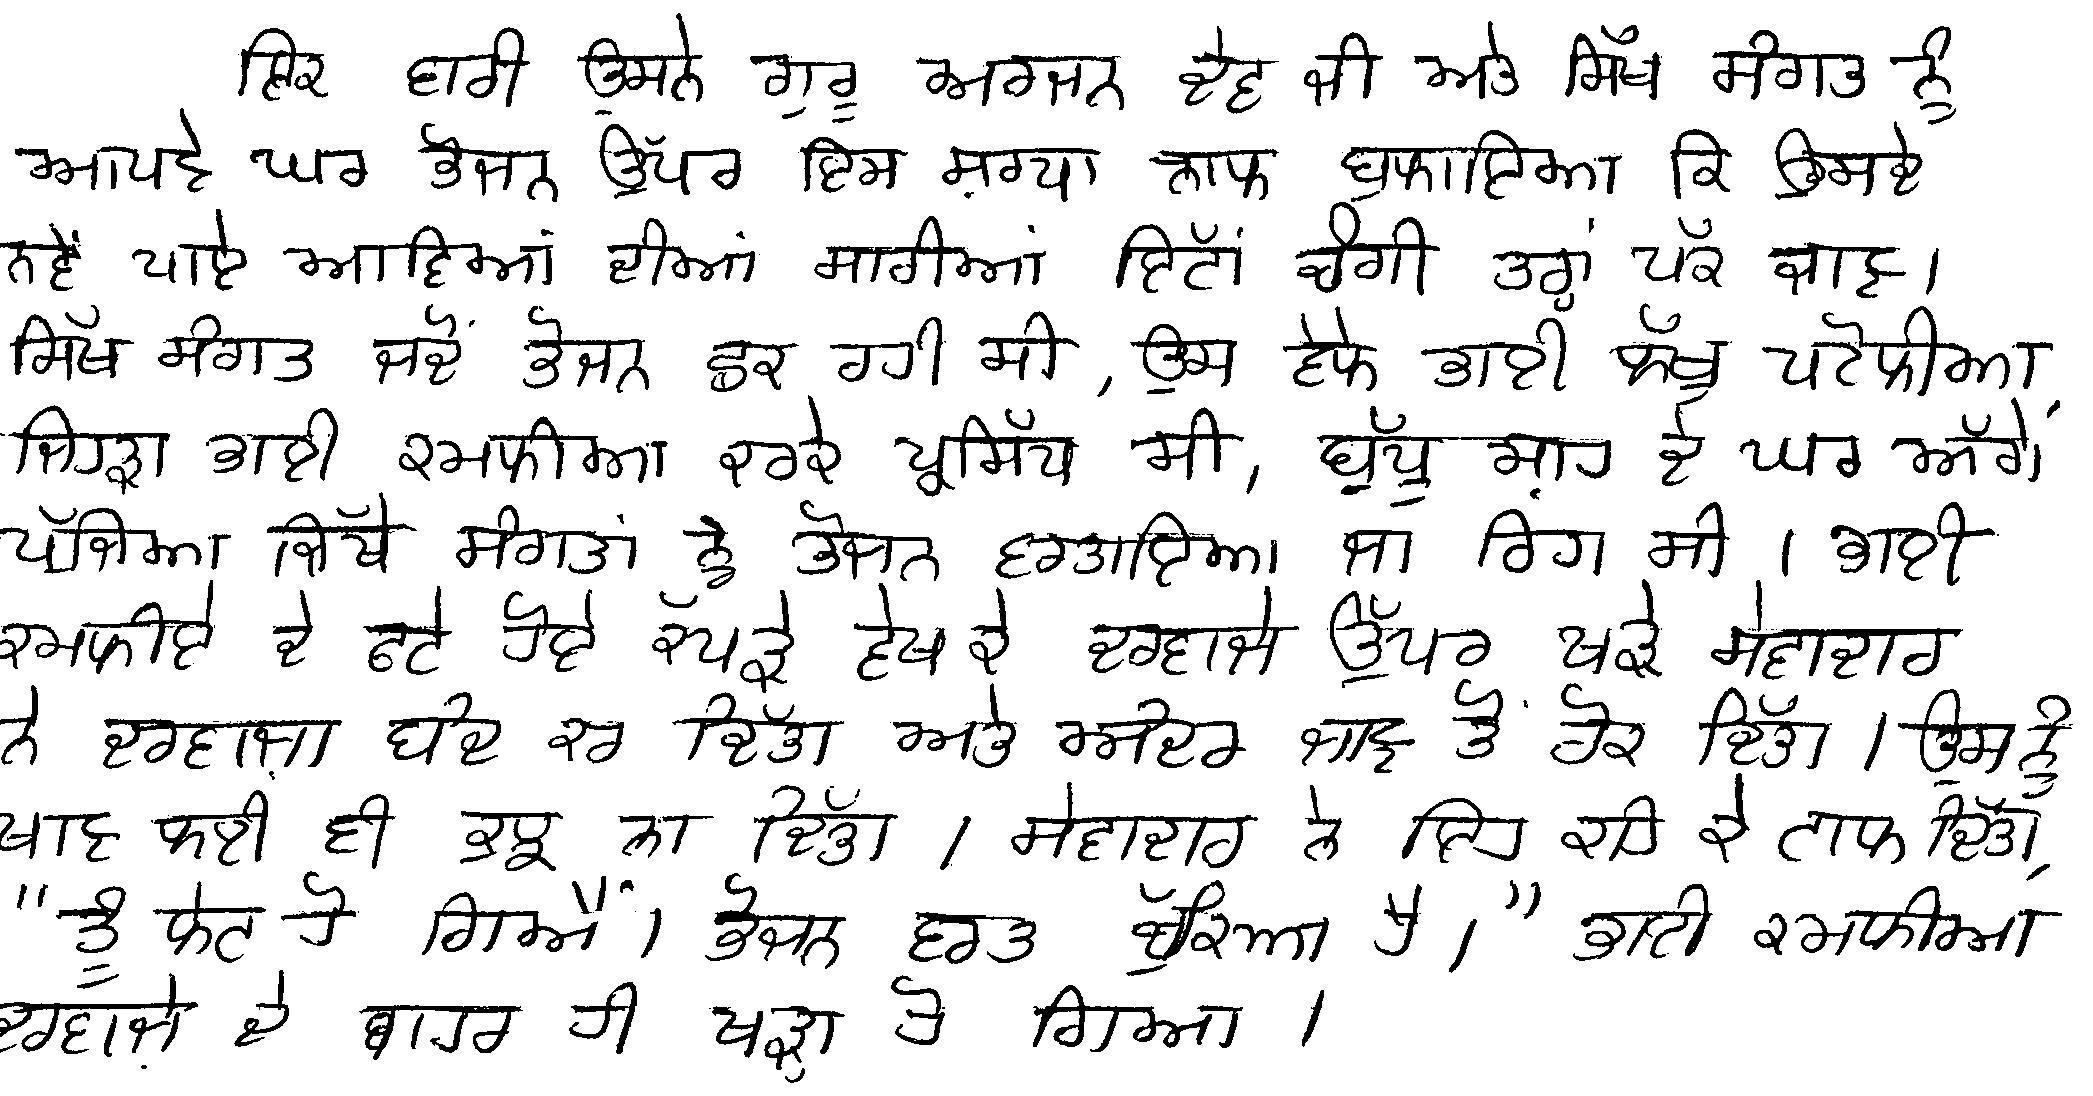 ਇਕ ਵਾਰੀ ਉਸਨੇ ਗੁਰੂ ਅਰਜਨ ਦੇਵ ਜੀ ਅਤੇ ਸਿੱਖ ਸੰਗਤ ਨੂੰ
ਆਪਣੇ ਘਰ ਭੋਜਨ ਉੱਪਰ ਇਸ ਸ਼ਰਧਾ ਨਾਲ ਬੁਲਾਇਆ ਕਿ ਉਸਦੇ
ਨਵੇਂ ਪਾਏ ਆਵਿਆਂ ਦੀਆਂ ਸਾਰੀਆਂ ਇੱਟਾਂ ਚੰਗੀ ਤਰ੍ਹਾਂ ਪੱਕ ਜਾਣ।
ਸਿੱਖ ਸੰਗਤ ਜਦੋਂ ਭੋਜਨ ਛਕ ਰਹੀ ਸੀ, ਉਸ ਵੇਲੇ ਭਾਈ ਲੱਖੂ ਪਟੋਲੀਆ,
ਜਿਹੜਾ ਭਾਈ ਕਮਲੀਆ ਕਰਕੇ ਪ੍ਰਸਿੱਧ ਸੀ, ਬੁੱਧੂ ਸ਼ਾਹ ਦੇ ਘਰ ਅੱਗੇ
ਪੁੱਜਿਆ ਜਿੱਥੇ ਸੰਗਤਾਂ ਨੂੰ ਭੋਜਨ ਵਰਤਾਇਆ ਜਾ ਰਿਹਾ ਸੀ। ਭਾਈ
ਕਮਲੀਏ ਦੇ ਫਟੇ ਹੋਏ ਕੱਪੜੇ ਵੇਖ ਕੇ ਦਰਵਾਜੇ ਉੱਪਰ ਖੜੇ ਸੇਵਾਦਾਰ
ਨੇ ਦਰਵਾਜ਼ਾ ਬੰਦ ਕਰ ਦਿੱਤਾ ਅਤੇ ਅੰਦਰ ਜਾਣ ਤੋਂ ਰੋਕ ਦਿੱਤਾ। ਉਸਨੂੰ
ਖਾਣ ਲਈ ਵੀ ਕੁਝ ਨਾ ਦਿੱਤਾ। ਸੇਵਾਦਾਰ ਨੇ ਇਹ ਕਹਿ ਕੇ ਟਾਲ ਦਿੱਤਾ,
"ਤੂੰ ਲੇਟ ਹੋ ਗਿਐਂ। ਭੋਜਨ ਵਰਤ ਚੁੱਕਿਆ ਹੈ।" ਭਾਈ ਕਮਲੀਆ
ਦਰਵਾਜ਼ੇ ਦੇ ਬਾਹਰ ਹੀ ਖੜ੍ਹਾ ਹੋ ਗਿਆ।